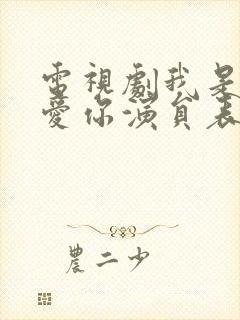 電視劇我是
愛你演員表
農二少